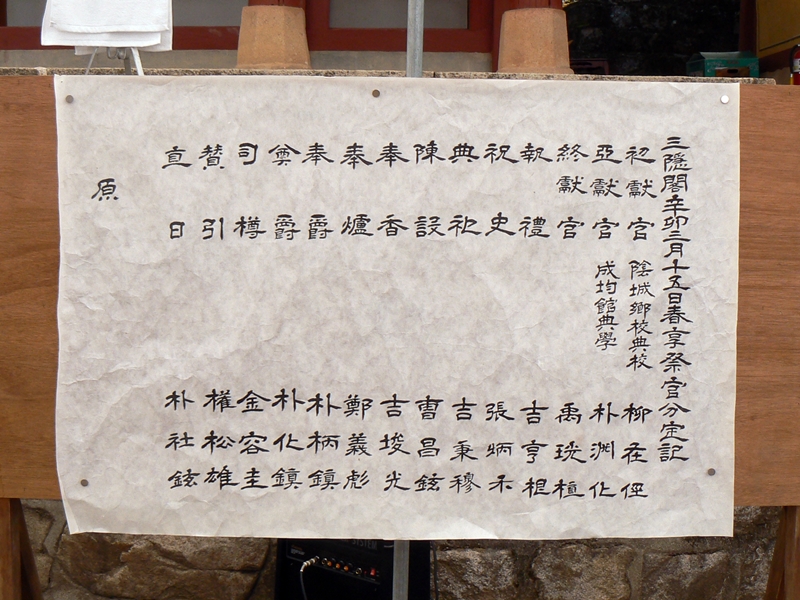 三隱閣辛卯三月十五日春享祭官分定記
初獻官 陰城鄕校典校 柳在俓
亞獻官 成均館典學 朴淵化
終獻官 禹珖植
執禮 吉亨根
祝史 張炳禾
典祀 吉秉穆
陳設 曺昌鉉
奉香 吉埈光
奉爐 鄭義彪
奉爵 朴柄鎭
奠爵 朴化鎭
司樽 金容圭
贊引 權松雄
直日 朴社鉉
原